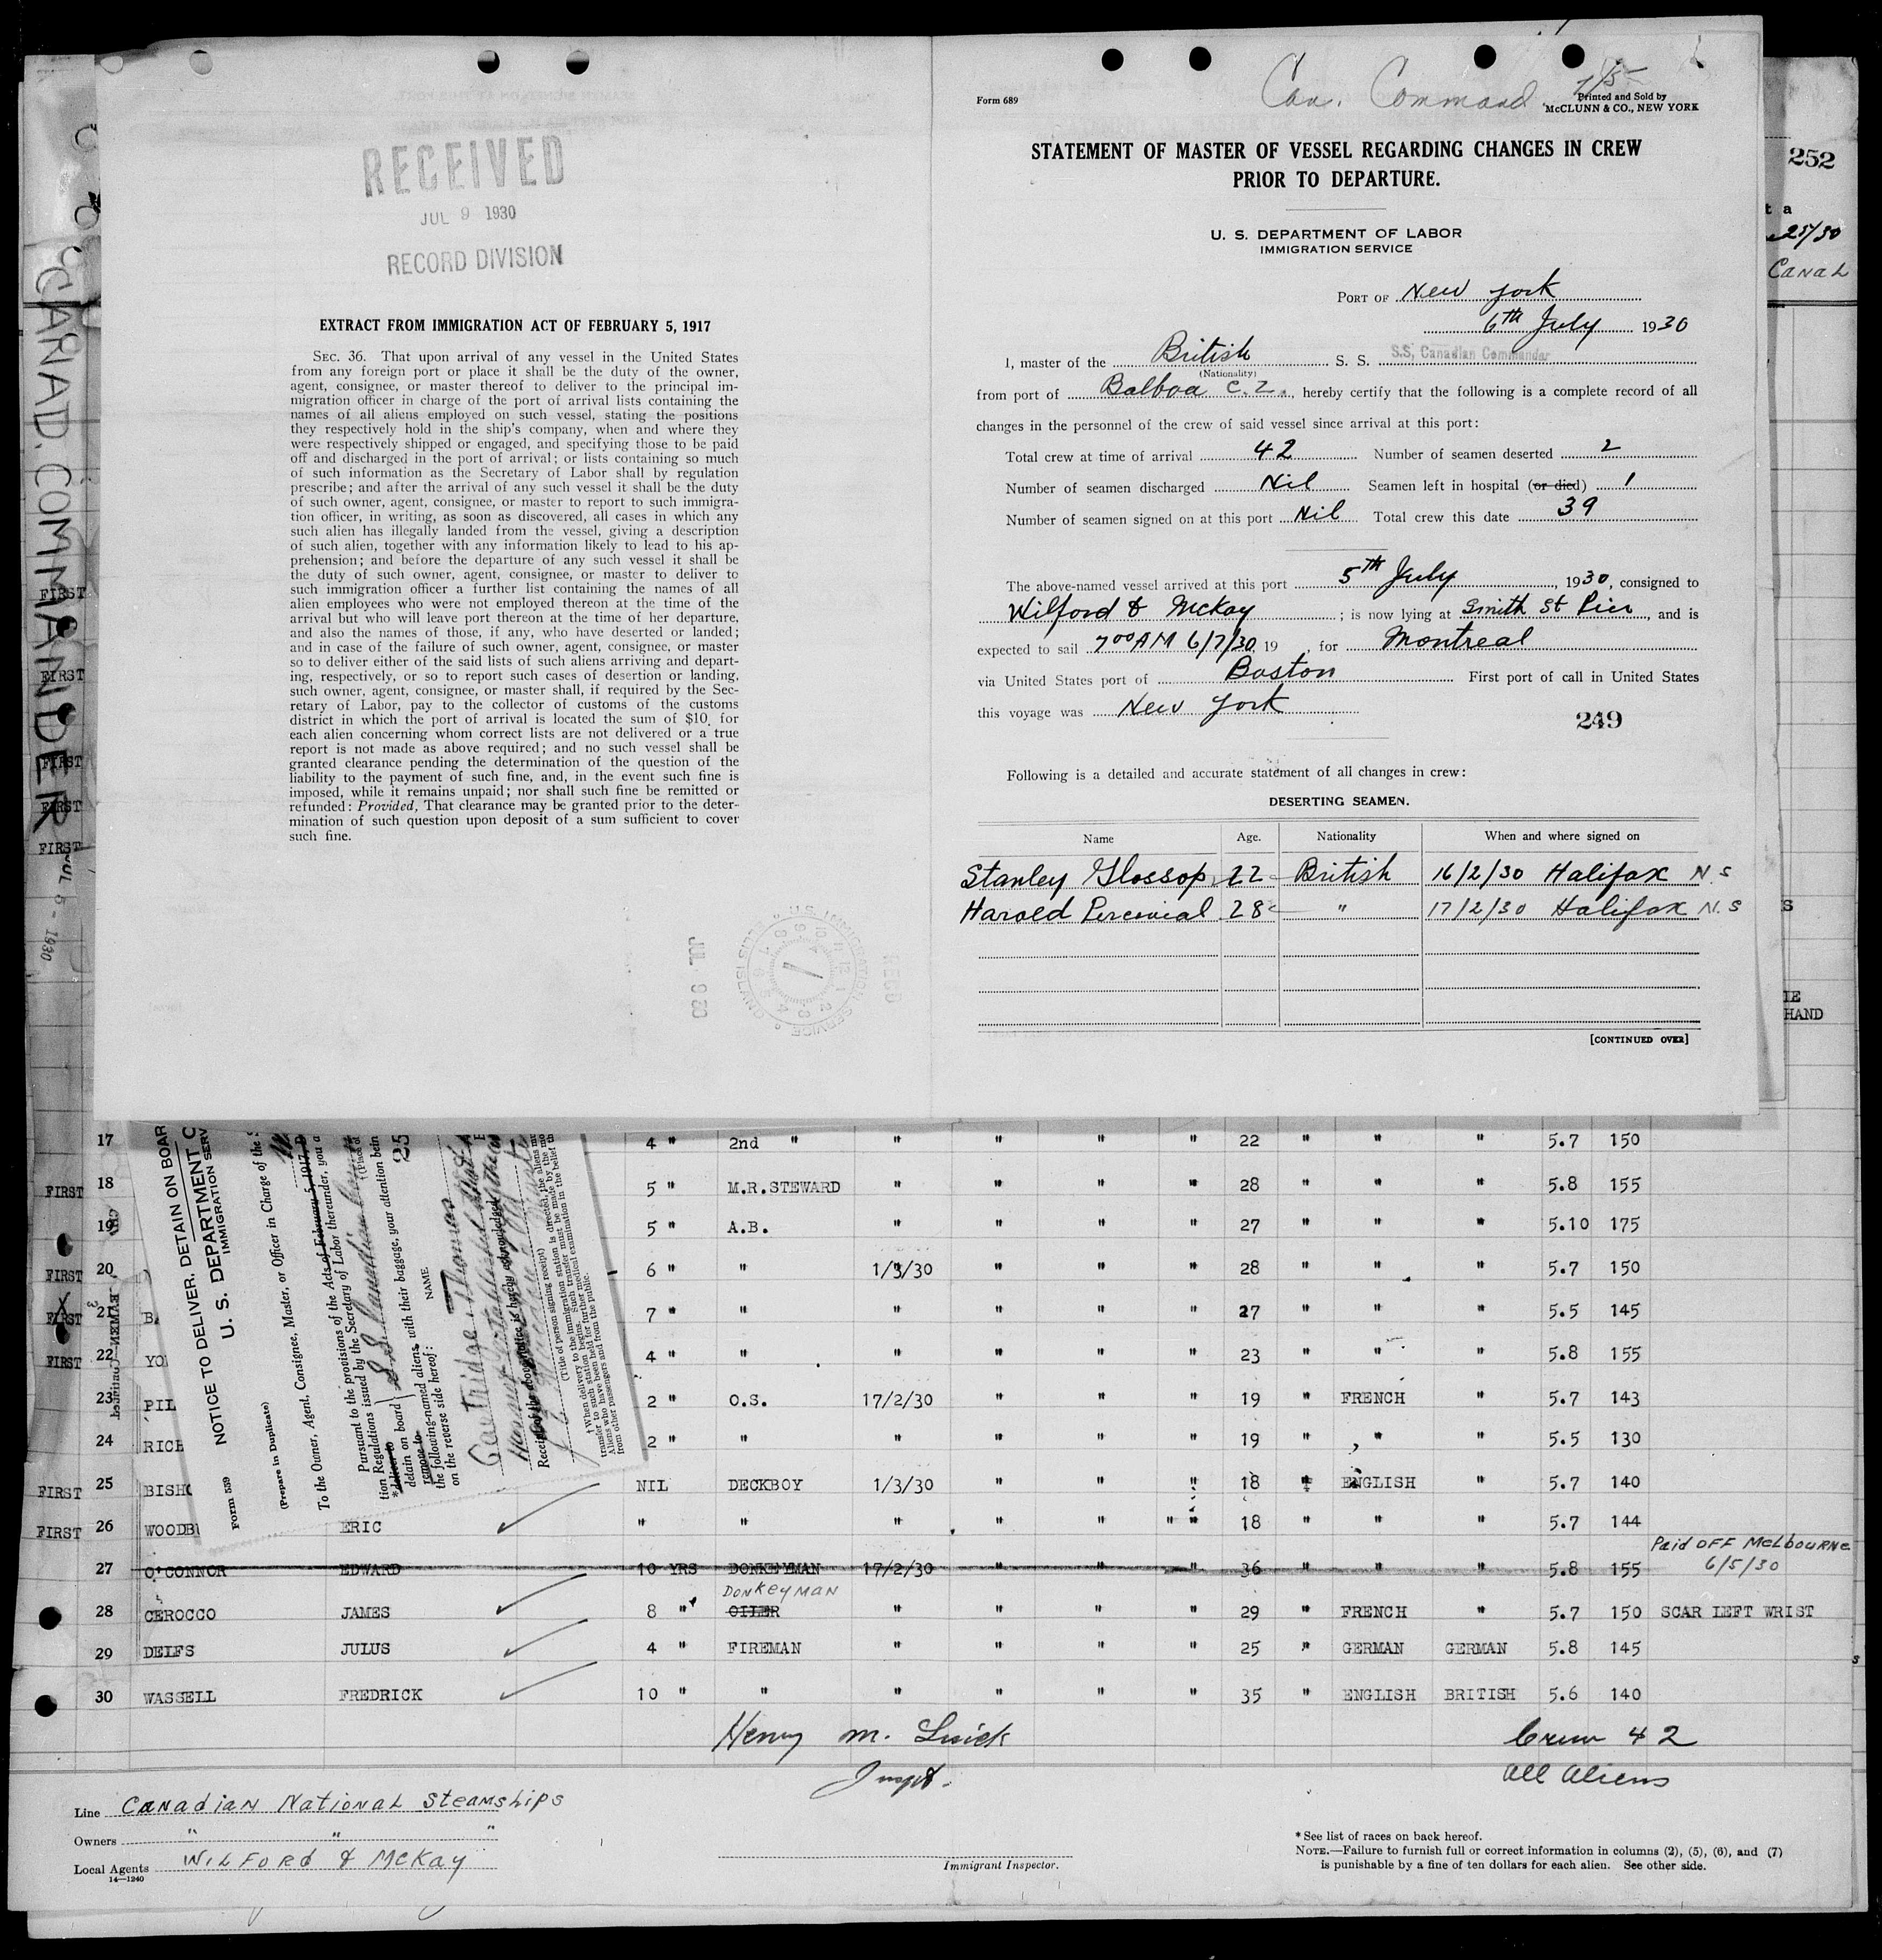 RECEIVED
JUL 9 1930
RECORD DIVISION
EXTRACT FROM IMMIGRATION ACT OF FEBRUARY 5, 1917
SEC. 36. That upon arrival of any vessel in the United States
from any foreign port or place it shall be the duty of the owner,
agent, consignee, or master thereof to deliver to the principal im-
migration officer in charge of the port of arrival lists containing the
names of all aliens employed on such vessel, stating the positions
they respectively hold in the ship's company, when and where they
were respectively shipped or engaged, and specifying those to be paid
off and discharged in the port of arrival; or lists containing so much
of such information as the Secretary of Labor shall by regulation
prescribe; and after the arrival of any such vessel it shall be the duty
of such owner, agent, consignee, or master to report to such immigra-
tion officer, in writing, as soon as discovered, all cases in which any
such alien has illegally landed from the vessel, giving a description
of such alien, together with any information likely to lead to his ap-
prehension; and before the departure of any such vessel it shall be
the duty of such owner, agent, consignee, or master to deliver to
such immigration officer a further list containing the names of all
alien employees who were not employed thereon at the time of the
arrival but who will leave port thereon at the time of her departure,
and also the names of those, if any, who have deserted or landed;
and in case of the failure of such owner, agent, consignee, or master
so to deliver either of the said lists of such aliens arriving and depart-
ing, respectively, or so to report such cases of desertion or landing,
such owner, agent, consignee, or master shall, if required by the Sec-
retary of Labor, pay to the collector of customs of the customs
district in which the port of arrival is located the sum of $10, for
each alien concerning whom correct lists are not delivered or a true
report is not made as above required; and no such vessel shall be
granted clearance pending the determination of the question of the
liability to the payment of such fine, and, in the event such fine is
imposed, while it remains unpaid; nor shall such fine be remitted or
refunded: Provided, That clearance may be granted prior to the deter-
mination of such question upon deposit of a sum sufficient to cover
such fine.
JUL 9 30
U.S. IMMIGRATION SERVICE ELLIS ISLAND
RECD
Form 689
Can. Command. 7/5
Printed and Sold by
McCLUNN & CO., NEW YORK
STATEMENT OF MASTER OF VESSEL REGARDING CHANGES IN CREW
PRIOR TO DEPARTURE.
U. S. DEPARTMENT OF LABOR
IMMIGRATION SERVICE
PORT OF New York
6th July 1930
I, master of the British S. S. S.S. Canadian Commander
(Nationality)
from port of Balboa C.Z., hereby certify that the following is a complete record of all
changes in the personnel of the crew of said vessel since arrival at this port:
Total crew at time of arrival 42 Number of seamen deserted 2
Number of seamen discharged Nil Seamen left in hospital (or died) 1
Number of seamen signed on at this port Nil Total crew this date 39
The above-named vessel arrived at this port 5th July, 1930, consigned to
Wilford & McKay; is now lying at Smith St Pier, and is
expected to sail 7 00 AM 6/7/30 19 , for Montreal
via United States port of Boston First port of call in United States
this voyage was New York
249
Following is a detailed and accurate statement of all changes in crew:
DESERTING SEAMEN.
Name Age. Nationality When and where signed on
Stanley Glossop 22 British 16/2/30 Halifax N.S
Harold Percival 28 " 17/2/30 Halifax N.S
[CONTINUED OVER]
252
t a
25/30
CANAL
S
IE
HAND
CANAD. COMMANDER
JUL 5 - 1930
FIRST
FIRST
FIRST
FIRST
FIRST
Form 539
NOTICE TO DELIVER, DETAIN ON BOAR
U. S. DEPARTMENT O
IMMIGRATION SERV
(Prepare in Duplicate)
To the Owner, Agent, Consignee, Master, or Officer in Charge of the S
Pursuant to the provisions of the Acts of February 5, 1917, D
tion Regulations issued by the Secretary of Labor thereunder, you a
*deliver to
detain on board S.S. Canadian
remove to
the following-named aliens, with their baggage, your attention bein
on the reverse side hereof: 25
NAME
Gartridge Thomas
Receipt of the above notice is hereby acknowledged
(Title of person signing receipt)
17 4 " 2nd " " " " " 22 " " " 5.7 150
FIRST 18 5 " M.R.STEWARD " " " " 28 " " " 5.8 155
19 5 " A.B. " " " " 27 " " " 5.10 175
FIRST 20 6 " " 1/3/30 " " " 28 " " " 5.7 150
FIRST 21 BA 7 " " " " " " 27 " " " 5.5 145
FIRST 22 YO 4 " " " " " " 23 " " " 5.8 155
23 PIL 2 " O.S. 17/2/30 " " " 19 " FRENCH " 5.7 143
24 RICH 2 " " " " " " 19 " " " 5.5 130
FIRST 25 BISHO NIL DECKBOY 1/3/30 " " " 18 " ENGLISH " 5.7 140
FIRST 26 WOODB ERIC " " " " " " " 18 " " " 5.7 144
27 O'CONNOR EDWARD 10 YRS DONKEYMAN 17/2/30 " " " 36 " " " 5.8 155 Paid OFF MELBOURNE 6/5/30
DONKEYMAN
28 CEROCCO JAMES 8 " OILER " " " " 29 " FRENCH " 5.7 150 SCAR LEFT WRIST
29 DELFS JULUS 4 " FIREMAN " " " " 25 " GERMAN GERMAN 5.8 145
30 WASSELL FREDRICK 10 " " " " " " 35 " ENGLISH BRITISH 5.6 140
Henry M. Quick
Inspt.
Crew 42
All Aliens
Line CANADIAN NATIONAL STEAMSHIPS
Owners " " "
Local Agents WILFORD & McKAY
14—1240
Immigrant Inspector.
* See list of races on back hereof.
NOTE.—Failure to furnish full or correct information in columns (2), (5), (6), and (7)
is punishable by a fine of ten dollars for each alien. See other side.